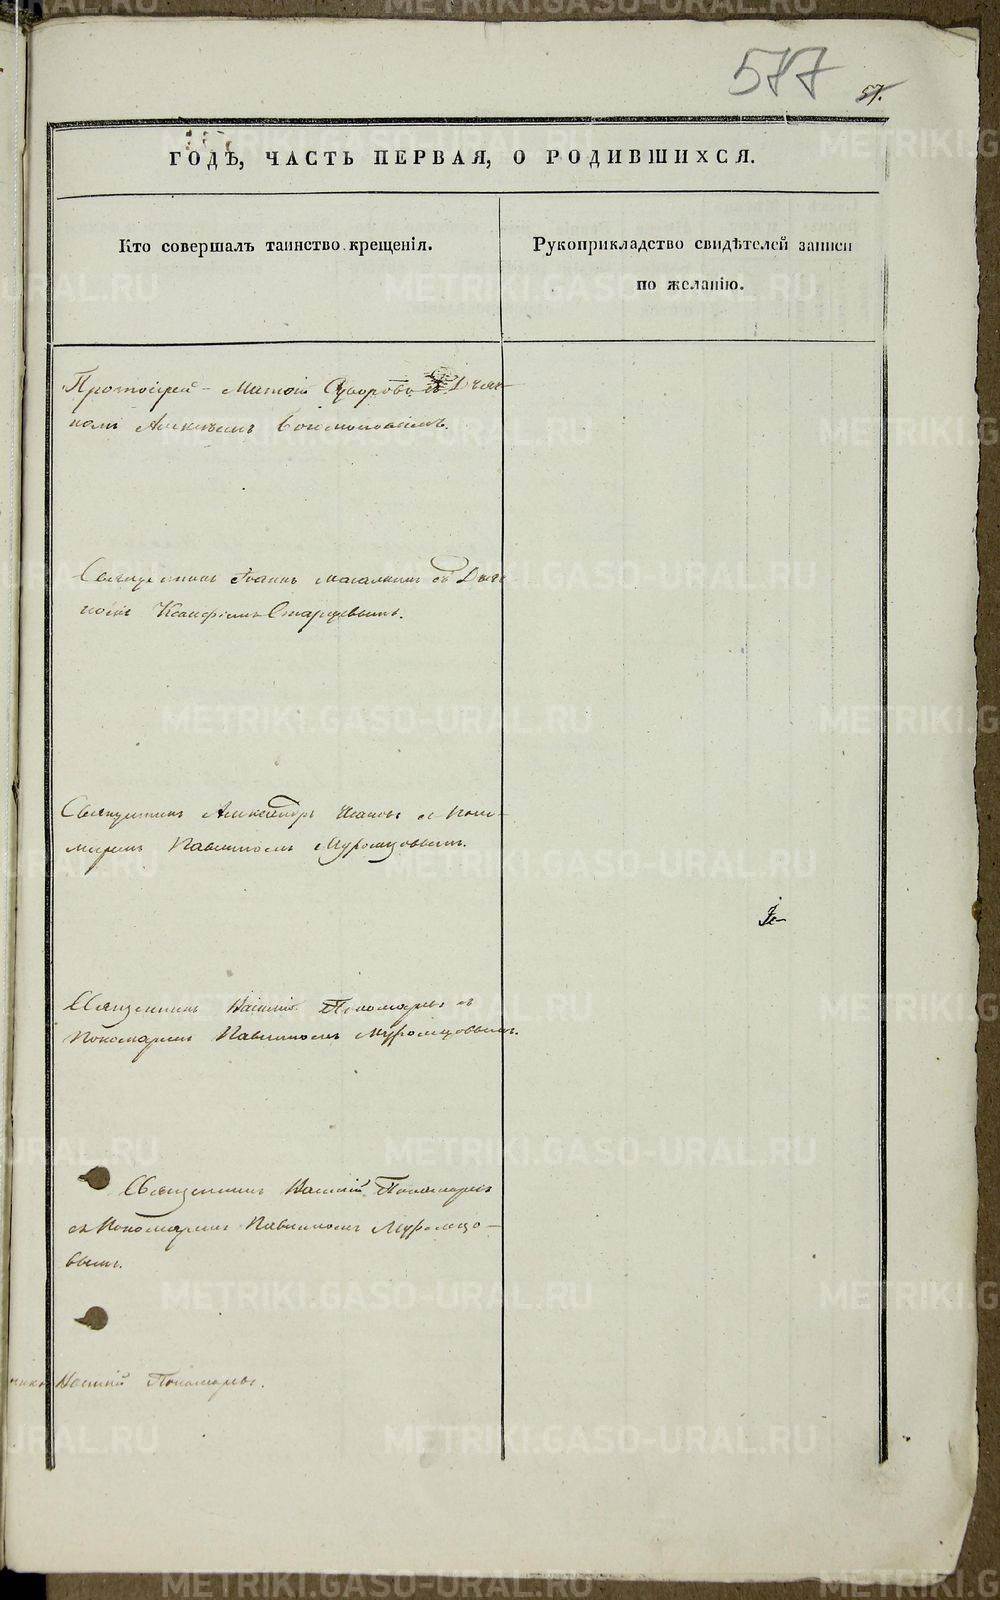 577 57.
ГОДѢ, ЧАСТЬ ПЕРВАЯ, О РОДИВШИХСЯ.
Кто совершалъ таинство крещенія.
Рукоприкладство свидѣтелей записи
по желанію.
Протоіерей Матѳій Суворовъ съ Діако-
номъ Алексѣемъ
Священникъ Іоаннъ съ Діа-
Старцевымъ.
Священникъ Александръ съ Поно-
маремъ Павлиномъ Муромцовымъ.
Священникъ Василій Пономаревъ съ
Пономаремъ Павлиномъ Муромцовымъ.
Священникъ Василій Пономаревъ
съ Пономаремъ Павлиномъ Муромцо-
вымъ.
Василій Пономаревъ.
METRIKI.GASO-URAL.RU